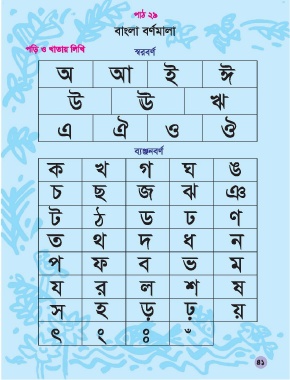 পাঠ ২৯
বাংলা বর্ণমালা
পড়ি ও খাতায় লিখি
স্বরবর্ণ
অ আ ই ঈ
উ ঊ ঋ
এ ঐ ও ঔ
ব্যঞ্জনবর্ণ
ক খ গ ঘ ঙ
চ ছ জ ঝ ঞ
ট ঠ ড ঢ ণ
ত থ দ ধ ন
প ফ ব ভ ম
য র ল শ ষ
স হ ড় ঢ় য়
ৎ ং ঃ ঁ
৪১